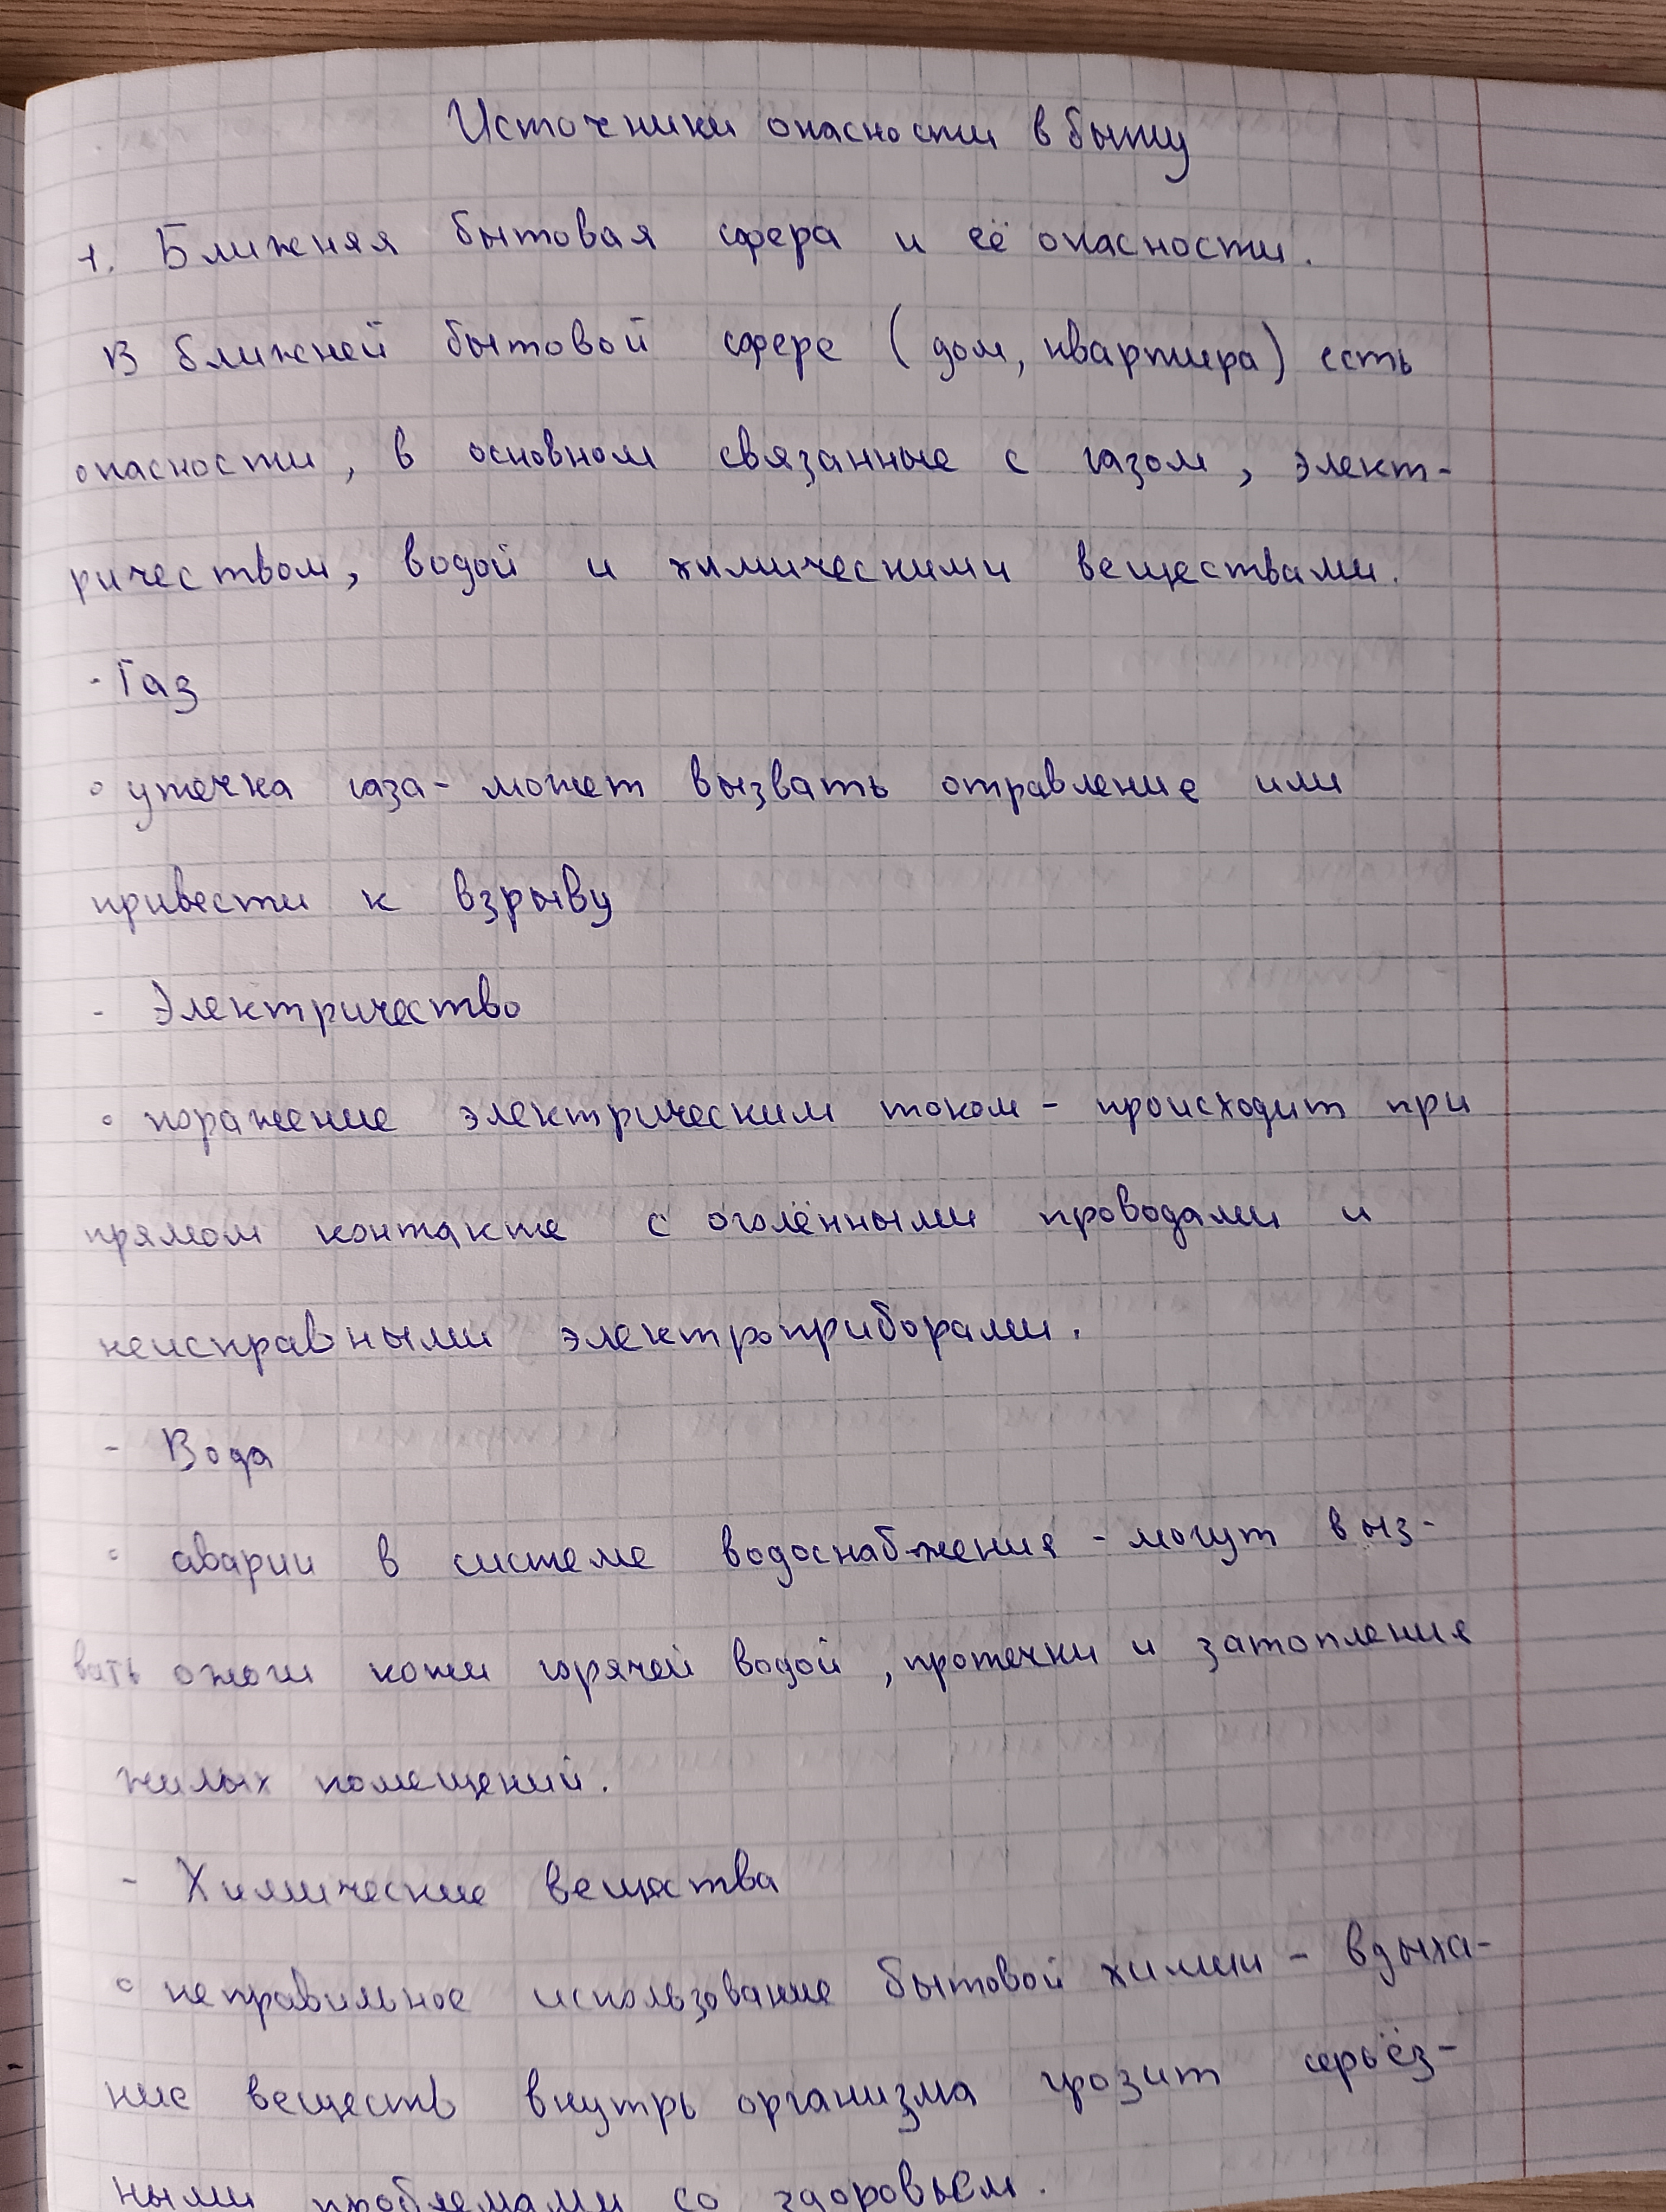 Источники опасности в быту
1. Ближняя бытовая сфера и её опасности.
В ближней бытовой сфере (дом, квартира) есть
опасности, в основном связанные с газом, элект-
ричеством, водой и химическими веществами.
- Газ
° утечка газа - может вызвать отравление или
привести к взрыву
- Электричество
° поражение электрическим током - происходит при
прямом контакте с оголёнными проводами и
неисправными электроприборами.
- Вода
° аварии в системе водоснабжения - могут выз-
вать ожоги кожи горячей водой, протечки и затопление
жилых помещений.
- Химические вещества
° неправильное использование бытовой химии - вдыха-
ние веществ внутрь организма грозит серьёз-
ными проблемами со здоровьем.